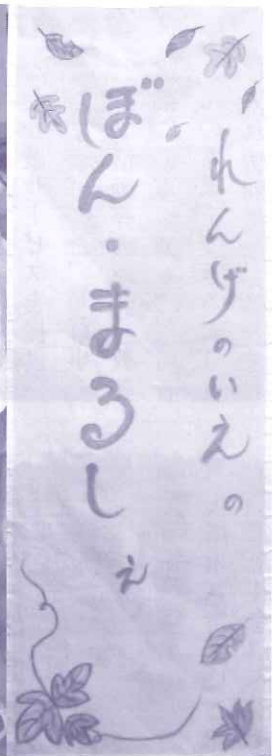 れんげのいえ。の
ぼん・まるしぇ